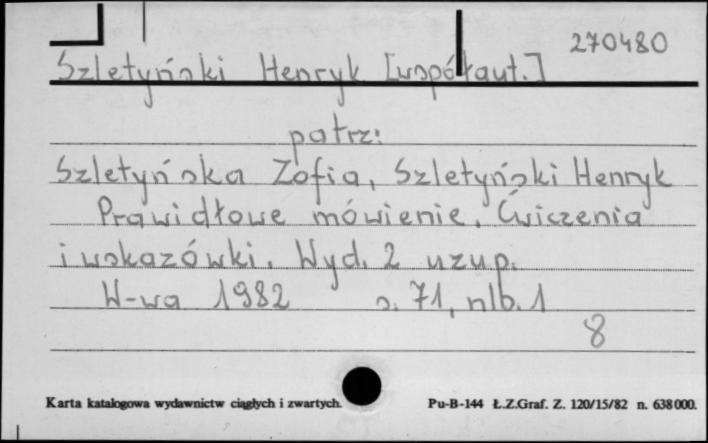 270480
Szletyński Henryk [współaut.]
patrz:
Szletyńska Zofia, Szletyński Henryk
Prawidłowe mówienie. Ćwiczenia
i wskazówki. Wyd. 2 uzup.
W-wa 1982 s. 71, nlb. 1
8
Karta katalogowa wydawnictw ciągłych i zwartych. Pu-B-144 Ł.Z.Graf. Z. 120/15/82 n. 638000.